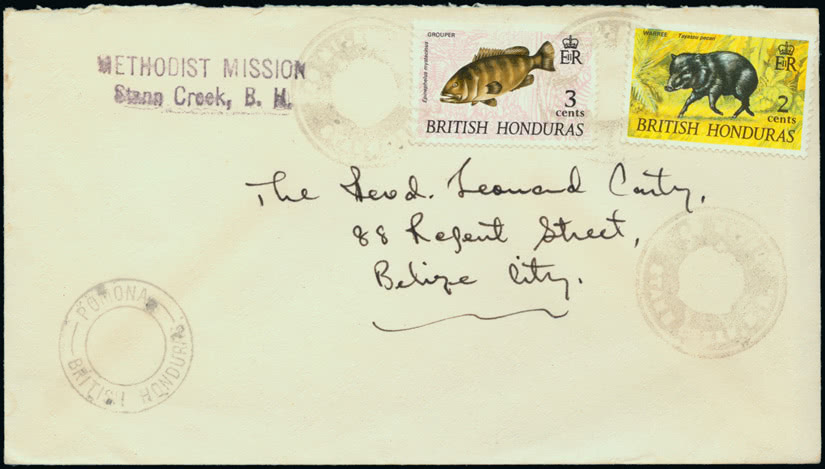 METHODIST MISSION
Stann Creek, B. H.
GROUPER
Epinephelus
3
cents
BRITISH HONDURAS
WARREE Tayassu pecari
2
cents
BRITISH HONDURAS
The Revd. Leonard Carty,
88 Regent Street,
Belize City.
POMONA
BRITISH HONDURAS